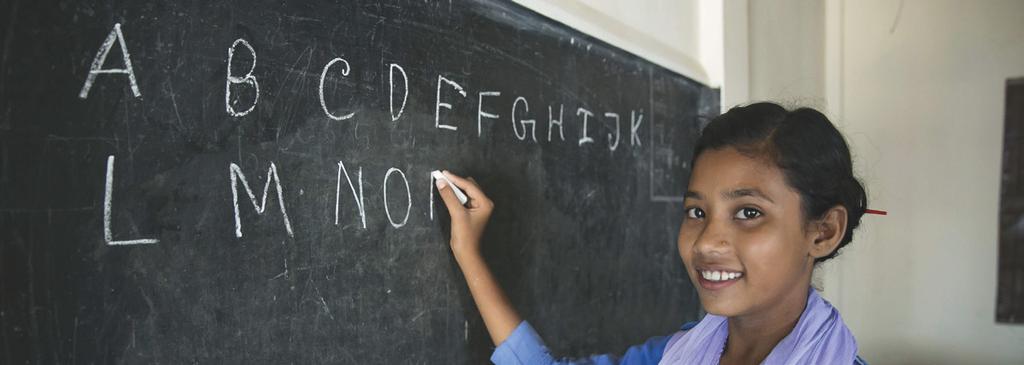 A B C D E F G H I J K
L M N O